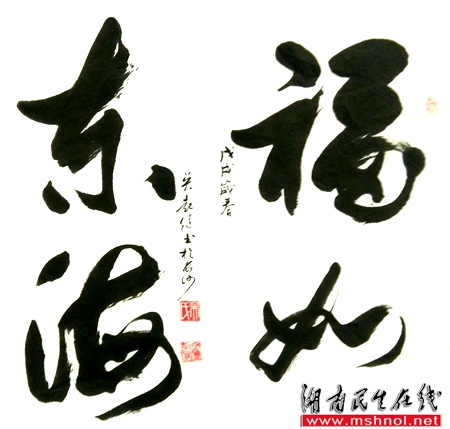 福如
东海
戊戌歲春
吴 书于长沙
湖南民生在线
www.mshnol.net